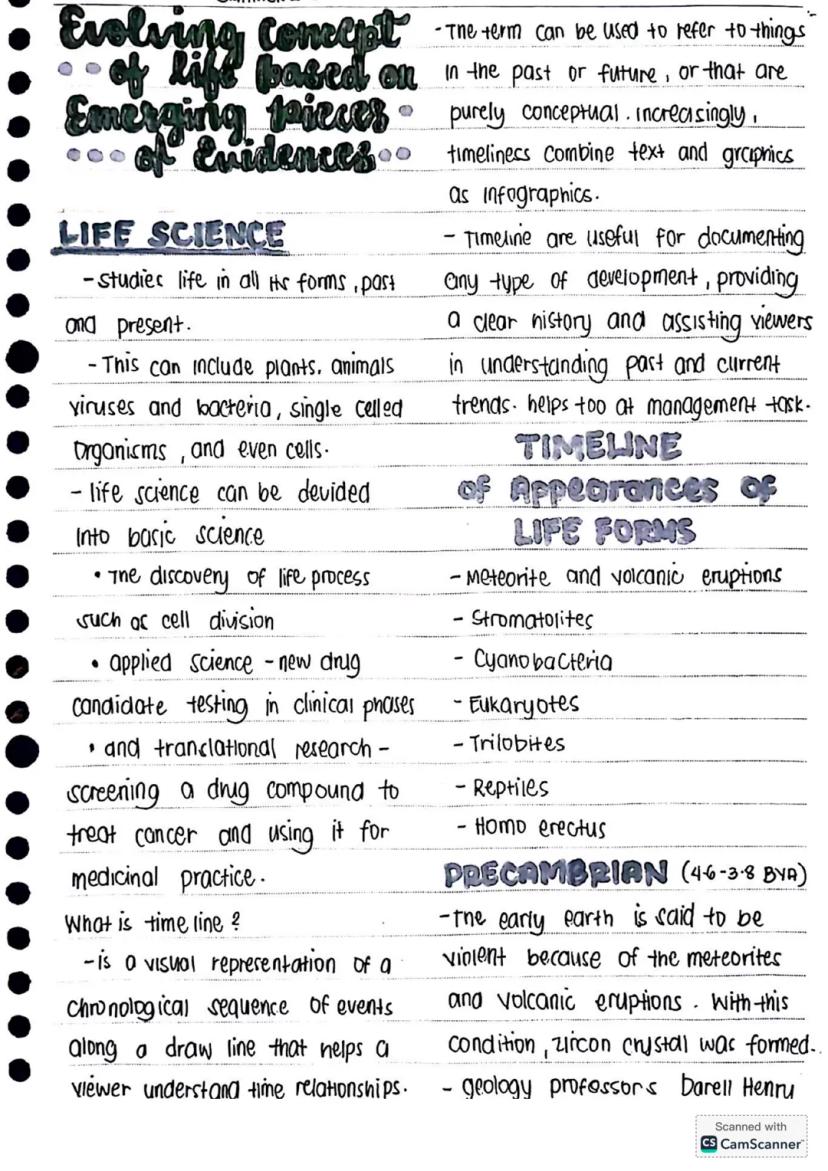 Evolving Concept
of life based on
Emerging pieces
of Evidences
LIFE SCIENCE
- studies life in all its forms, past
and present.
- This can include plants, animals
viruses and bacteria, single celled
organisms, and even cells.
- life science can be devided
into basic science
• The discovery of life process
such as cell division
• applied science - new drug
candidate testing in clinical phases
• and translational research -
screening a drug compound to
treat cancer and using it for
medicinal practice.
What is time line?
- is a visual representation of a
chronological sequence of events
along a draw line that helps a
viewer understand time relationships.
- The term can be used to refer to things
in the past or future, or that are
purely conceptual. increasingly,
timeliness combine text and graphics
as infographics.
- Timeline are useful for documenting
any type of development, providing
a clear history and assisting viewers
in understanding past and current
trends. helps too at management task.
TIMELINE
of Appearances of
LIFE FORMS
- Meteorite and volcanic eruptions
- Stromatolites
- Cyanobacteria
- Eukaryotes
- Trilobites
- Reptiles
- Homo erectus
PRECAMBRIAN (4.6-3.8 BYA)
- The early earth is said to be
violent because of the meteorites
and volcanic eruptions. With this
condition, zircon crystal was formed.
- geology professors Darell Henry
Scanned with
CS CamScanner